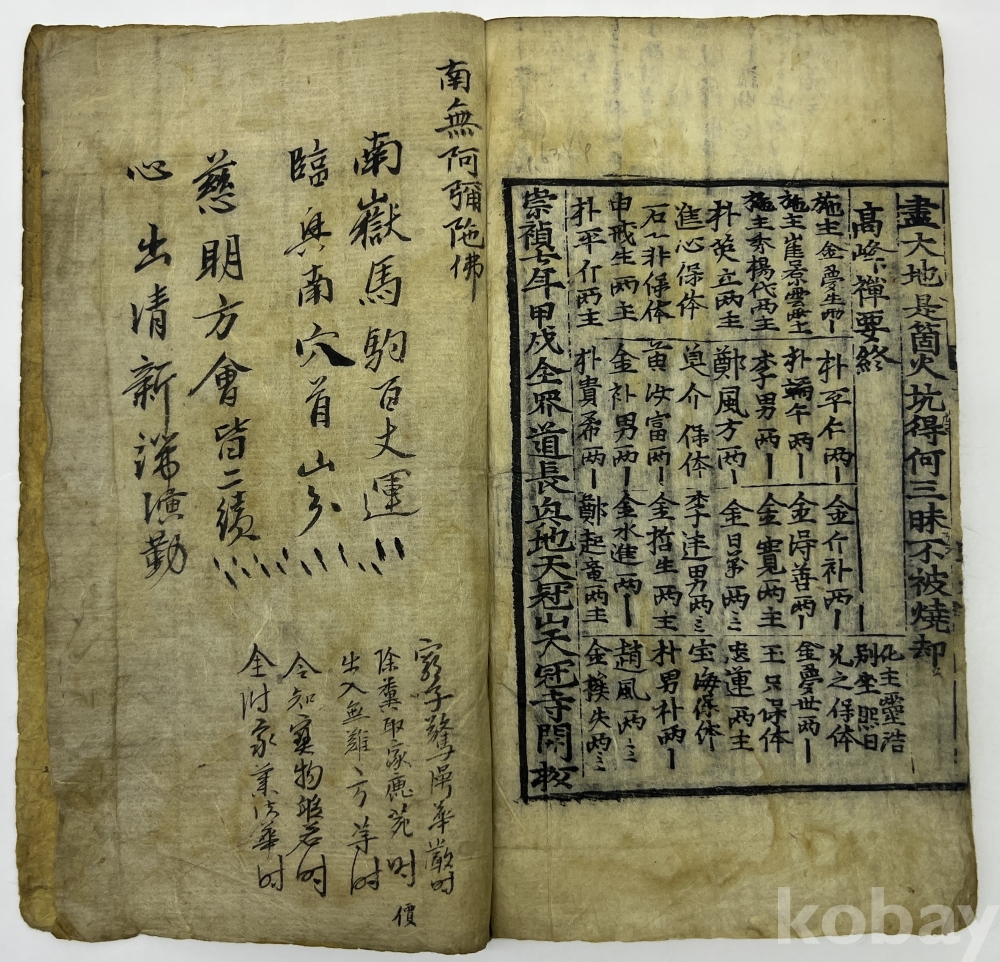 盡大地是箇火坑得何三昧不被燒却
高峰禪要終
化主靈浩
別坐熙日
施主金夢生兩一
朴平仁兩一
金介补兩一
兄之保体
施主崔景雲兩主
朴論午兩一
金得善兩一
金夢世兩一
施主秀楊代兩主
李男兩一
金寬兩主
王只保体
朴英立兩主
鄭風方兩一
金日苐兩三
忠運兩主
進心保体
皃介保体
李連男兩三
宝海保体
石乙非保体
黃汝富兩一
金哲生兩主
朴男补兩一
申戒生兩主
金补男兩一
金水進兩一
趙風兩三
朴平介兩主
朴貴希兩一
鄭起竜兩主
金候失兩三
崇禎七年甲戌全罗道長兴地天冠山天冠寺開板
南無阿彌陀佛
南嶽馬駒百丈運
臨興南穴首山分
慈明方會皆二續
心出清新深演勤
窮子驚愕華嚴时
除糞取家鹿苑时
出入無難方等时
令知寶物般若时
全付家業法華时
價
kobay